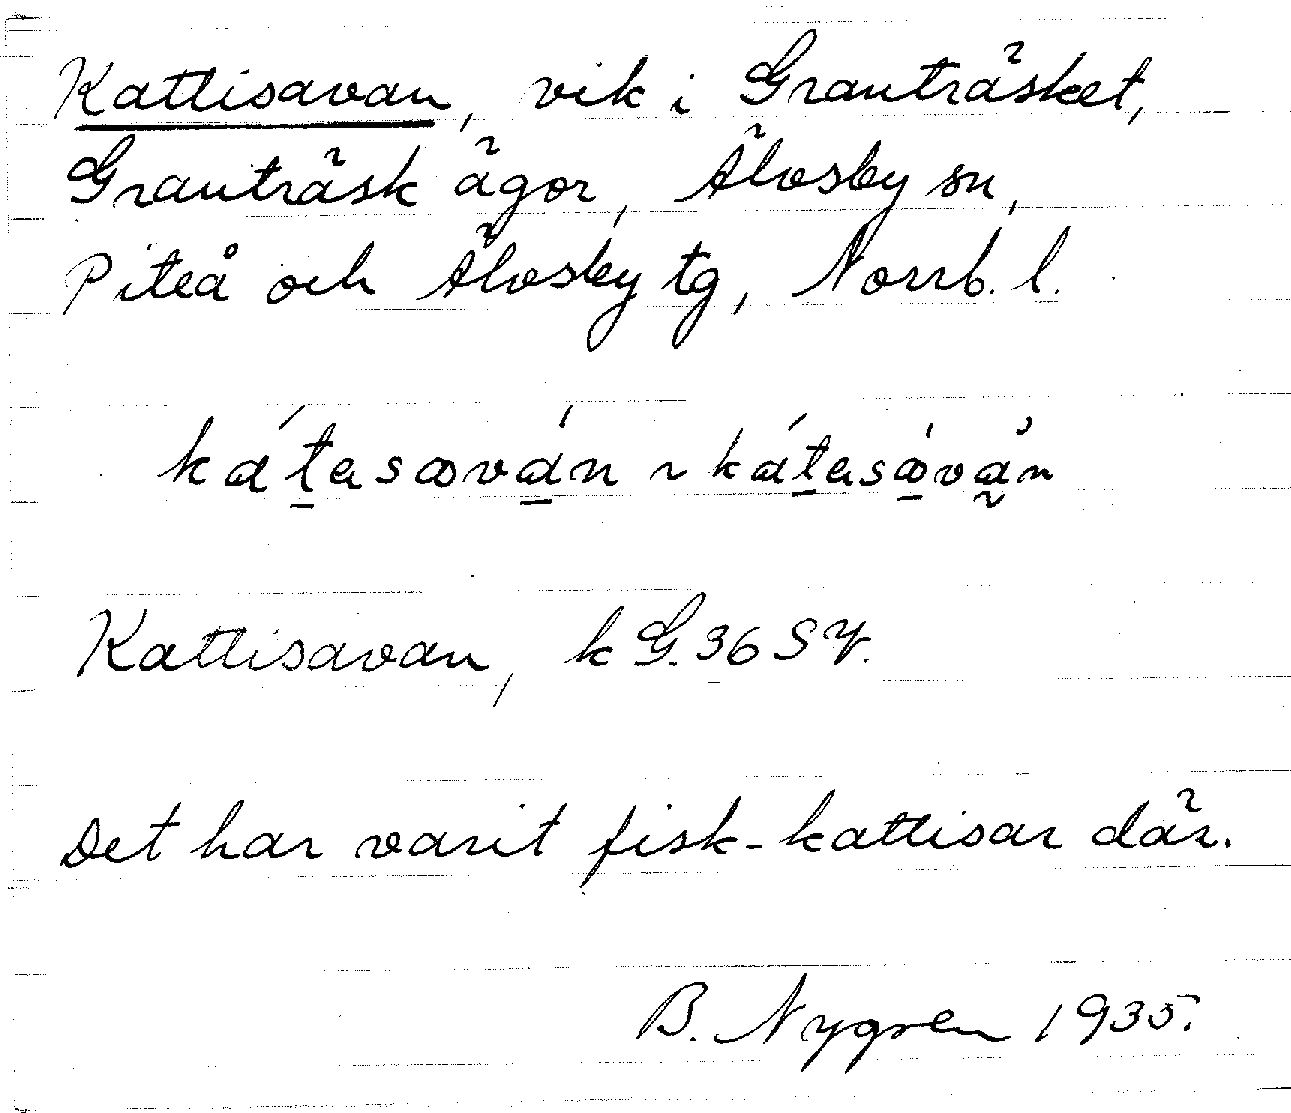 Kattisavan, vik i Granträsket,
Granträsk ägor, Älvsby sn,
Piteå och Älvsby tg, Norrb. l.
Kattisavan, k G. 36 SV.
Det har varit fisk-kattisar där.
B. Nygren 1935.